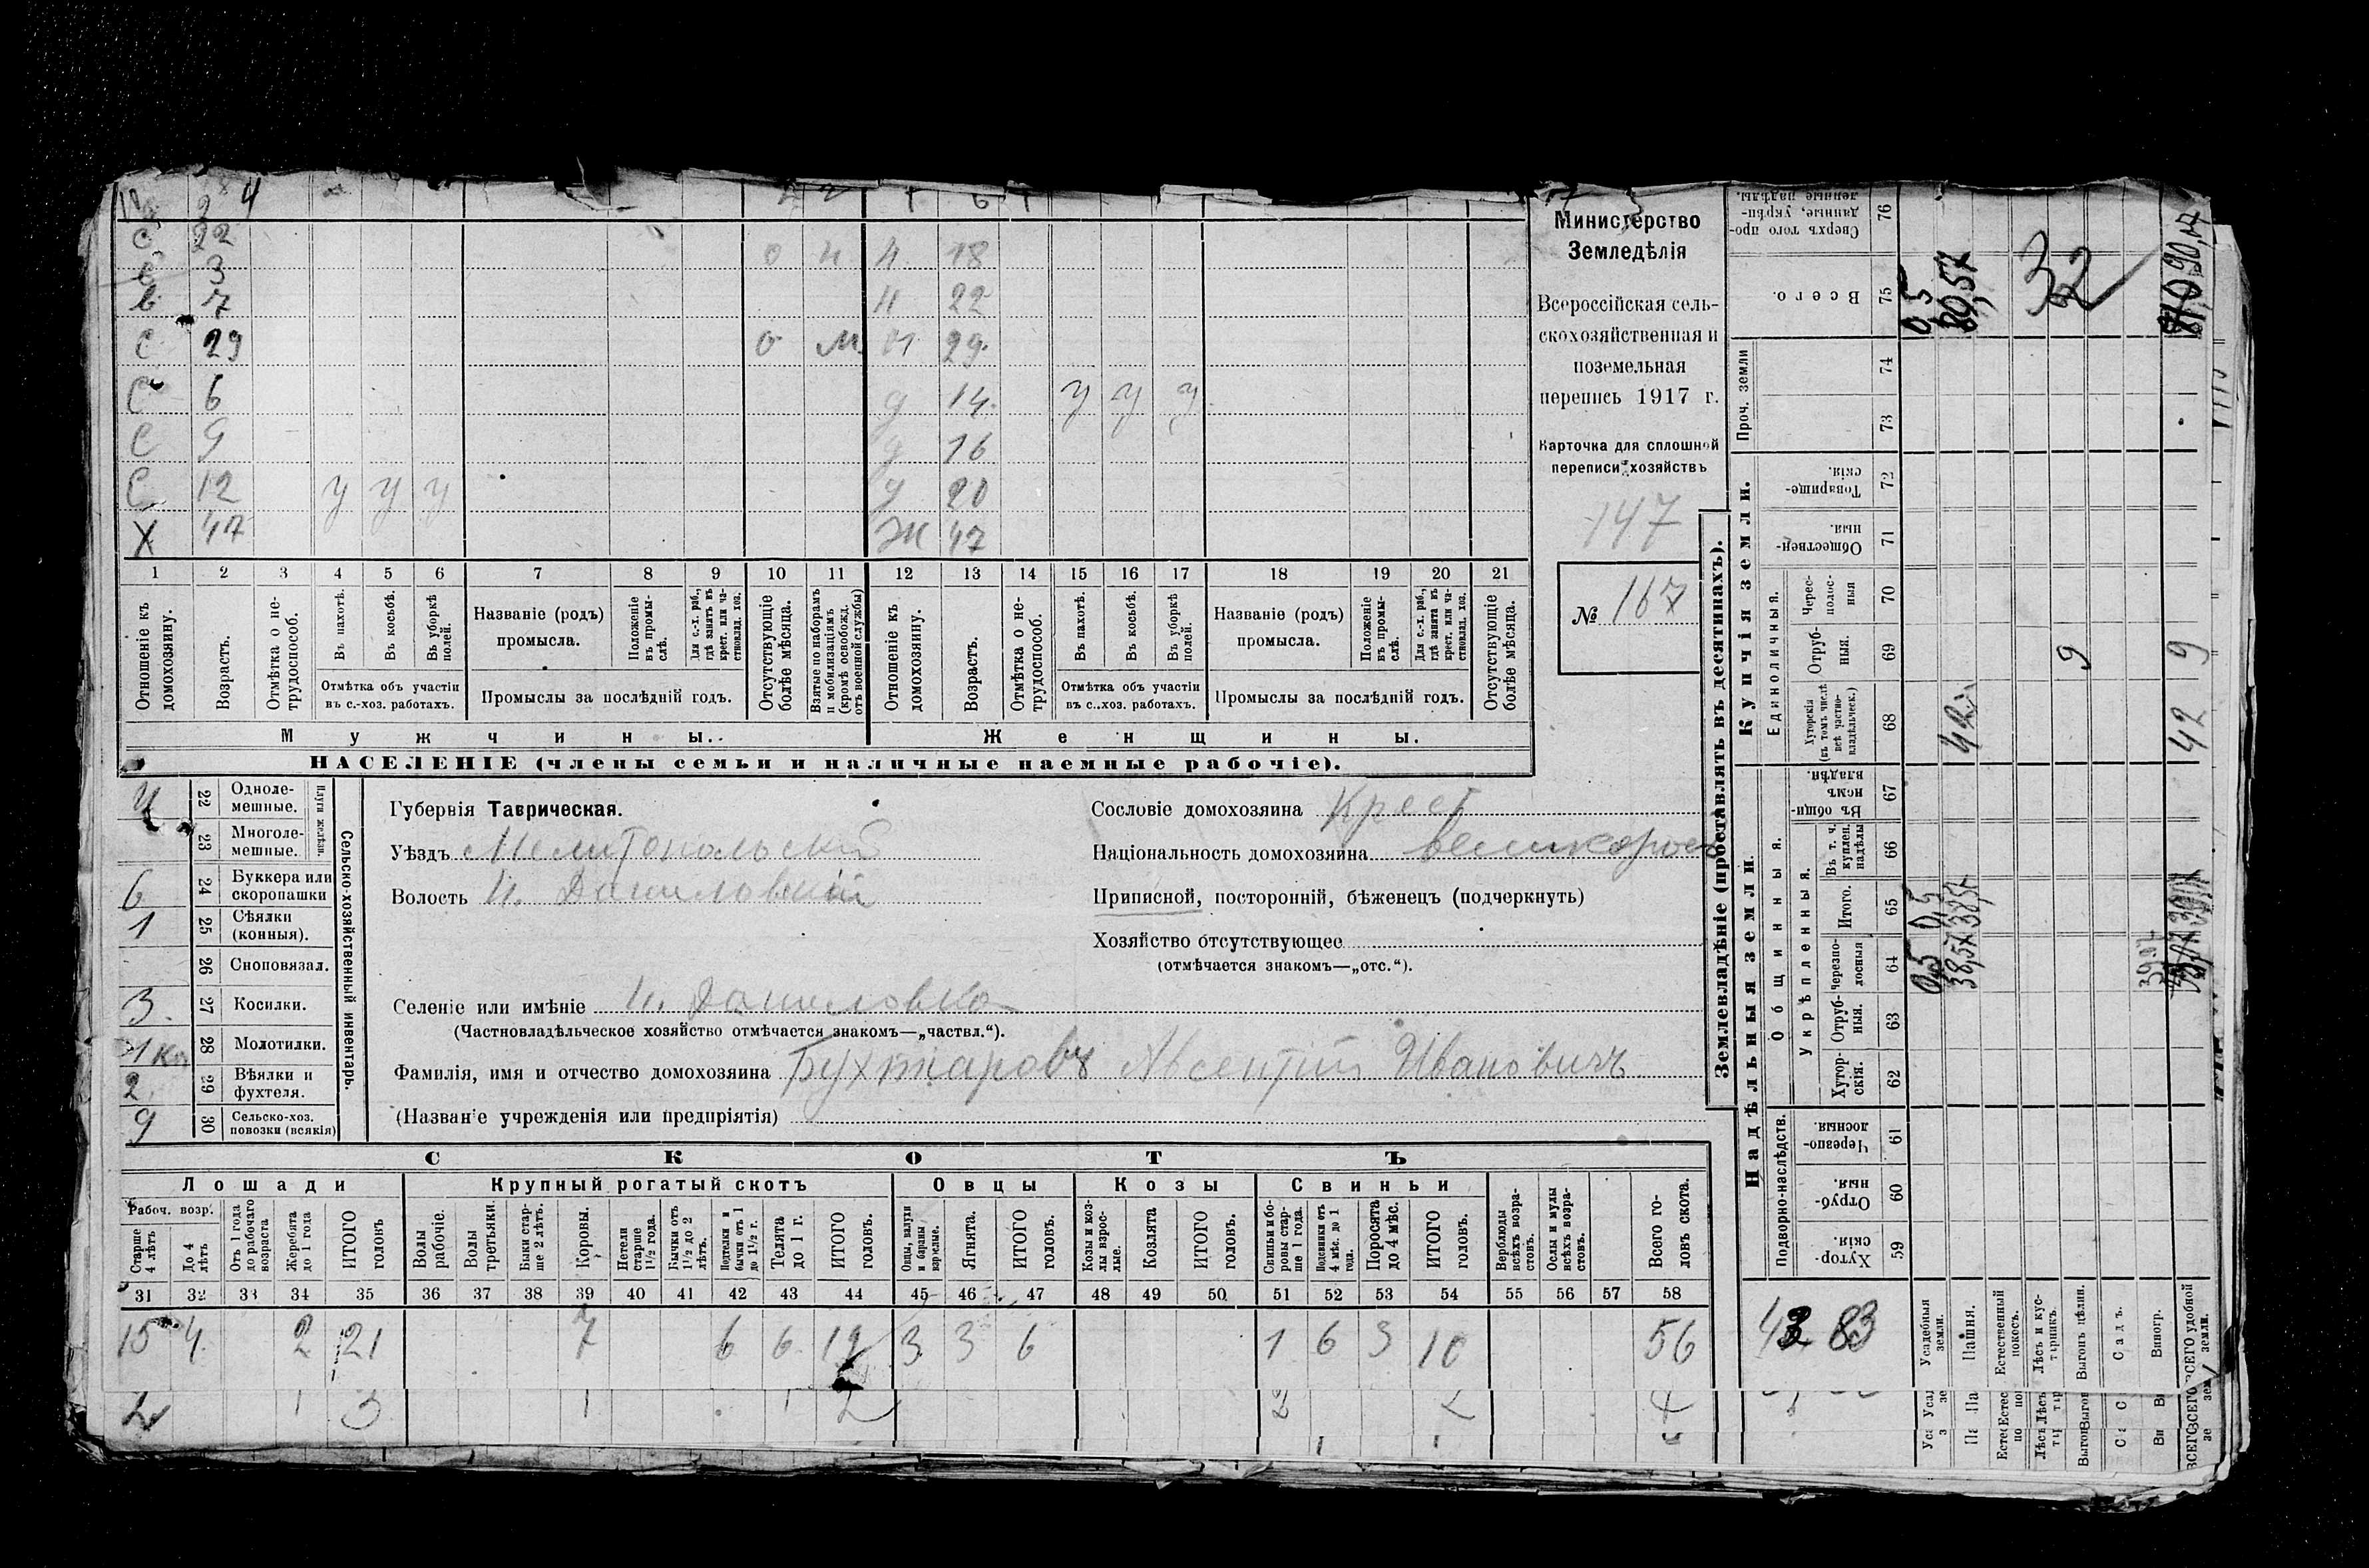 4
2 2 1 6 1
С 22 о н н 18
С 3
в 7 н 22
С 29 о м н 29
С 6 д 14 у у у
С 9 д 16
С 12 у у у д 20
Х 47 Ж 47
1 2 3 4 5 6 7 8 9 10 11 12 13 14 15 16 17 18 19 20 21
Отношеніе къ домохозяину.
Возрастъ.
Отмѣтка о нетрудоспособ.
Въ пахотѣ.
Въ косьбѣ.
Въ уборкѣ полей.
Отмѣтка объ участіи
въ с.-хоз. работахъ.
Названіе (родъ)
промысла.
Положеніе въ промыслѣ.
Для с.-х. раб., гдѣ занятъ въ крест. или частновлад. хоз.
Промыслы за послѣдній годъ.
Отсутствующіе болѣе мѣсяца.
Взятые по наборамъ и мобилизаціямъ (кромѣ освобожд. отъ военной службы)
Отношеніе къ домохозяину.
Возрастъ.
Отмѣтка о нетрудоспособ.
Въ пахотѣ.
Въ косьбѣ.
Въ уборкѣ полей.
Отмѣтка объ участіи
въ с.-хоз. работахъ.
Названіе (родъ)
промысла.
Положеніе въ промыслѣ.
Для с.-х. раб., гдѣ занята въ крест. или частновлад. хоз.
Промыслы за послѣдній годъ.
Отсутствующіе болѣе мѣсяца.
Мужчины. Женщины.
НАСЕЛЕНІЕ (члены семьи и наличные наемные рабочіе).
Министерство
Земледѣлія
Всероссійская сель-
скохозяйственная и
поземельная
перепись 1917 г.
Карточка для сплошной
переписи хозяйствъ
147
№ 167
Сельско-хозяйственный инвентарь.
Плуги желѣзн.
4 22 Одноле-
мешные.
23 Многоле-
мешные.
6 24 Буккера или
скоропашки
1 25 Сѣялки
(конныя).
26 Сноповязал.
3 27 Косилки.
1 Кон 28 Молотилки.
2 29 Вѣялки и
фухтеля.
9 30 Сельско-хоз.
повозки (всякія)
Губернія Таврическая.
Уѣздъ Мелитопольскій
Волость Н. Даниловскій
Селеніе или имѣніе Н. Даниловка
(Частновладѣльческое хозяйство отмѣчается знакомъ—„частвл.“).
Фамилія, имя и отчество домохозяина Бухтіаровъ Авсентій Ивановичъ
(Названіе учрежденія или предпріятія)
Сословіе домохозяина Крест
Національность домохозяина великорос
Приписной, посторонній, бѣженецъ (подчеркнуть)
Хозяйство отсутствующее
(отмѣчается знакомъ—„отс.“).
СКОТЪ
Лошади Крупный рогатый скотъ Овцы Козы Свиньи
Рабоч. возр.
Старше 4 лѣтъ
До 4 лѣтъ
Отъ 1 года до рабочаго возраста
Жеребята до 1 года
ИТОГО головъ
Волы рабочіе.
Волы третьяки.
Быки старше 2 лѣтъ.
Коровы.
Нетели старше 1½ года.
Бычки отъ 1½ до 2 лѣтъ.
Подтелки и бычки отъ 1 до 1½ г.
Телята до 1 г.
ИТОГО головъ.
Овцы, валухи и бараны взрослые.
Ягнята.
ИТОГО головъ.
Козы и козлы взрослые.
Козлята
ИТОГО головъ.
Свиньи и боровы старше 1 года.
Подсвинки отъ 4 мѣс. до 1 года.
Поросята до 4 мѣс.
ИТОГО головъ.
Верблюды всѣхъ возрастовъ.
Ослы и мулы всѣхъ возрастовъ.
Всего головъ скота.
31 32 33 34 35 36 37 38 39 40 41 42 43 44 45 46 47 48 49 50 51 52 53 54 55 56 57 58
15 4 2 21 7 6 6 19 3 3 6 1 6 3 10 56
2 1 3 1 1 2 2 2 4
Землевладѣніе (проставлять въ десятинахъ).
Купчія земли.
Надѣльныя земли.
Сверхъ того проданные, укрѣпленные надѣлы. 76
Всего. 75
Проч. земли 74
73
Товарищескія. 72
Общественныя. 71
Единоличныя.
Чересполосныя 70
Отрубныя. 69
Хуторскія (въ томъ числѣ всѣ частновладѣльческ.) 68
Общинныя.
Въ общинномъ владѣн. 67
Укрѣпленныя.
Въ т. ч. куплен. надѣлы 66
Итого. 65
Черезполосныя 64
Отрубныя. 63
Хуторскія. 62
Подворно-наслѣдств.
Черезполосныя. 61
Отрубныя. 60
Хуторскія. 59
0,5 80,57 32
42 9 42 9
0,5 0,5
38,57 38,57
39,07
83
Усадебныя земли.
Пашня.
Естественный покосъ.
Лѣсъ и кустарникъ.
Выгонъ цѣлин.
Садъ.
Виногр.
ВСЕГО удобной земли.